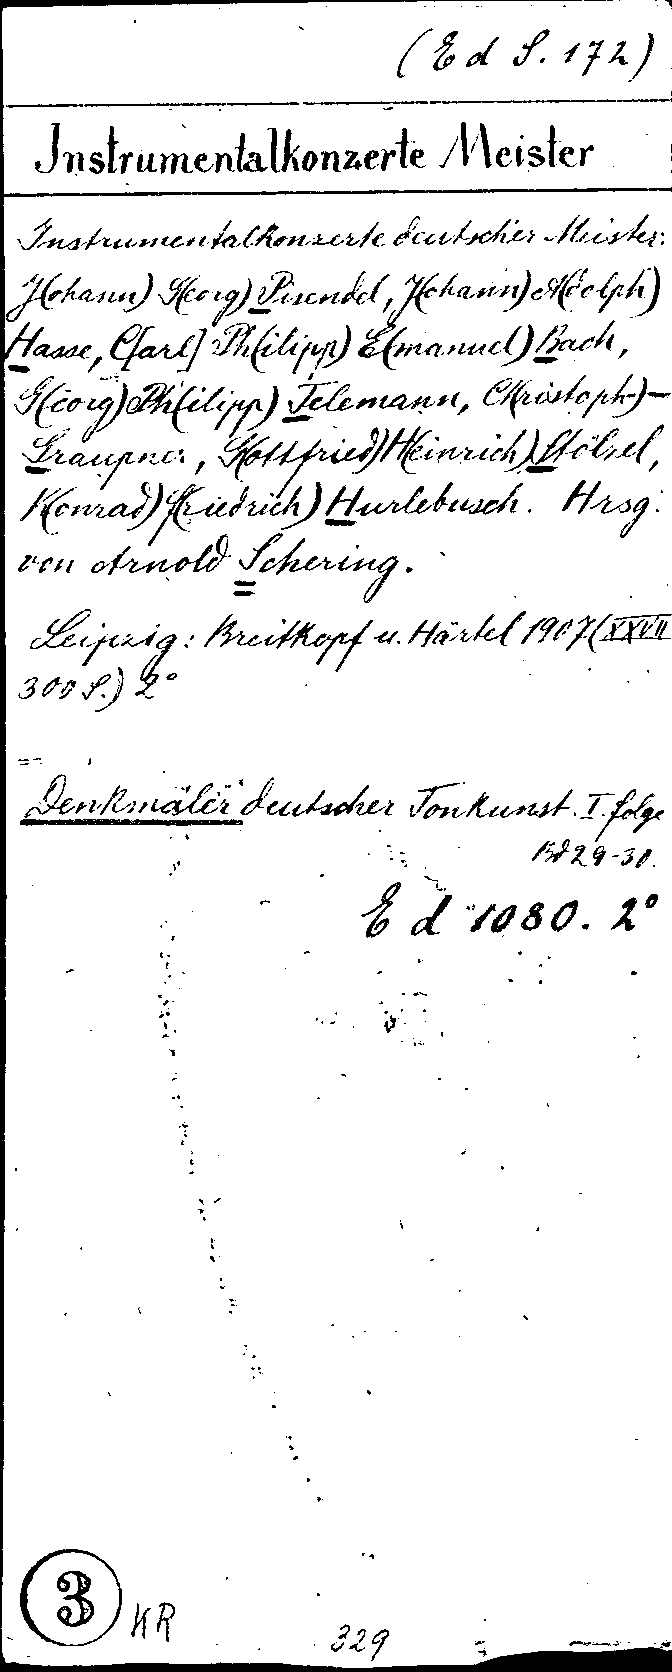 (E d S. 172)
Instrumentalkonzerte Meister
Instrumentalkonzerte deutscher Meister:
J(ohann) G(eorg) Pisendel, J(ohann) A(dolph)
Hasse, C[arl] Ph(ilipp) E(manuel) Bach,
G(eorg) Ph(ilipp) Telemann, Ch(ristoph)-
Graupner, G(ottfried) H(einrich) Stölzel,
K(onrad) F(riedrich) Hurlebusch. Hrsg.
von Arnold Schering.
Leipzig: Breitkopf u. Härtel 1907 (XXVII
300 S.) 2°
Denkmäler deutscher Tonkunst. I. Folge
Bd 29-30.
E d 1080. 2°
3 KR
329